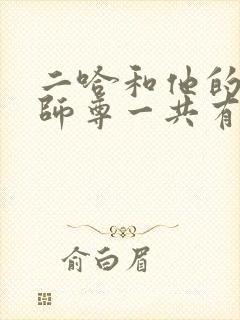 二哈和他的
師尊一共有
俞白眉